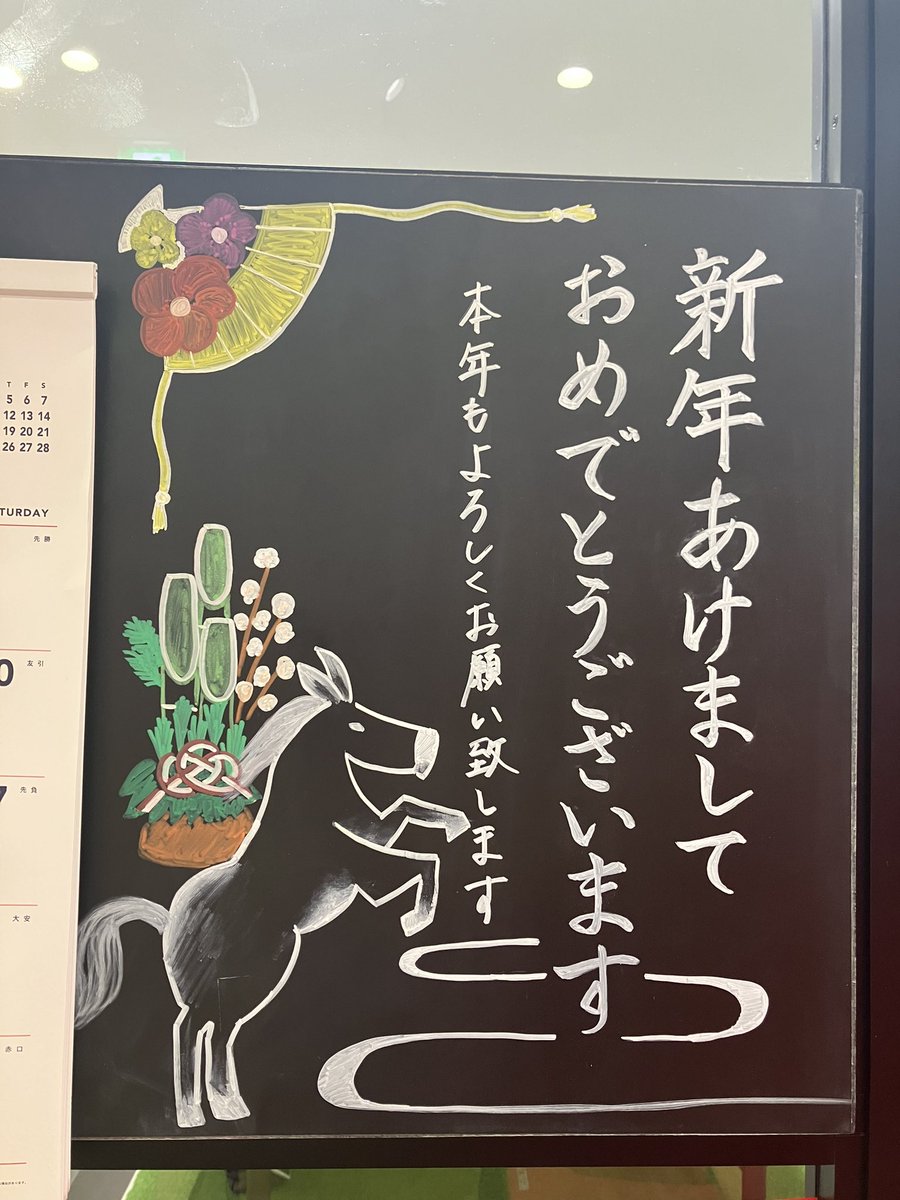 新年あけまして
おめでとうございます
本年もよろしくお願い致します
T F S
5 6 7
12 13 14
19 20 21
26 27 28
TURDAY
先勝
0 友引
7 先負
大安
赤口